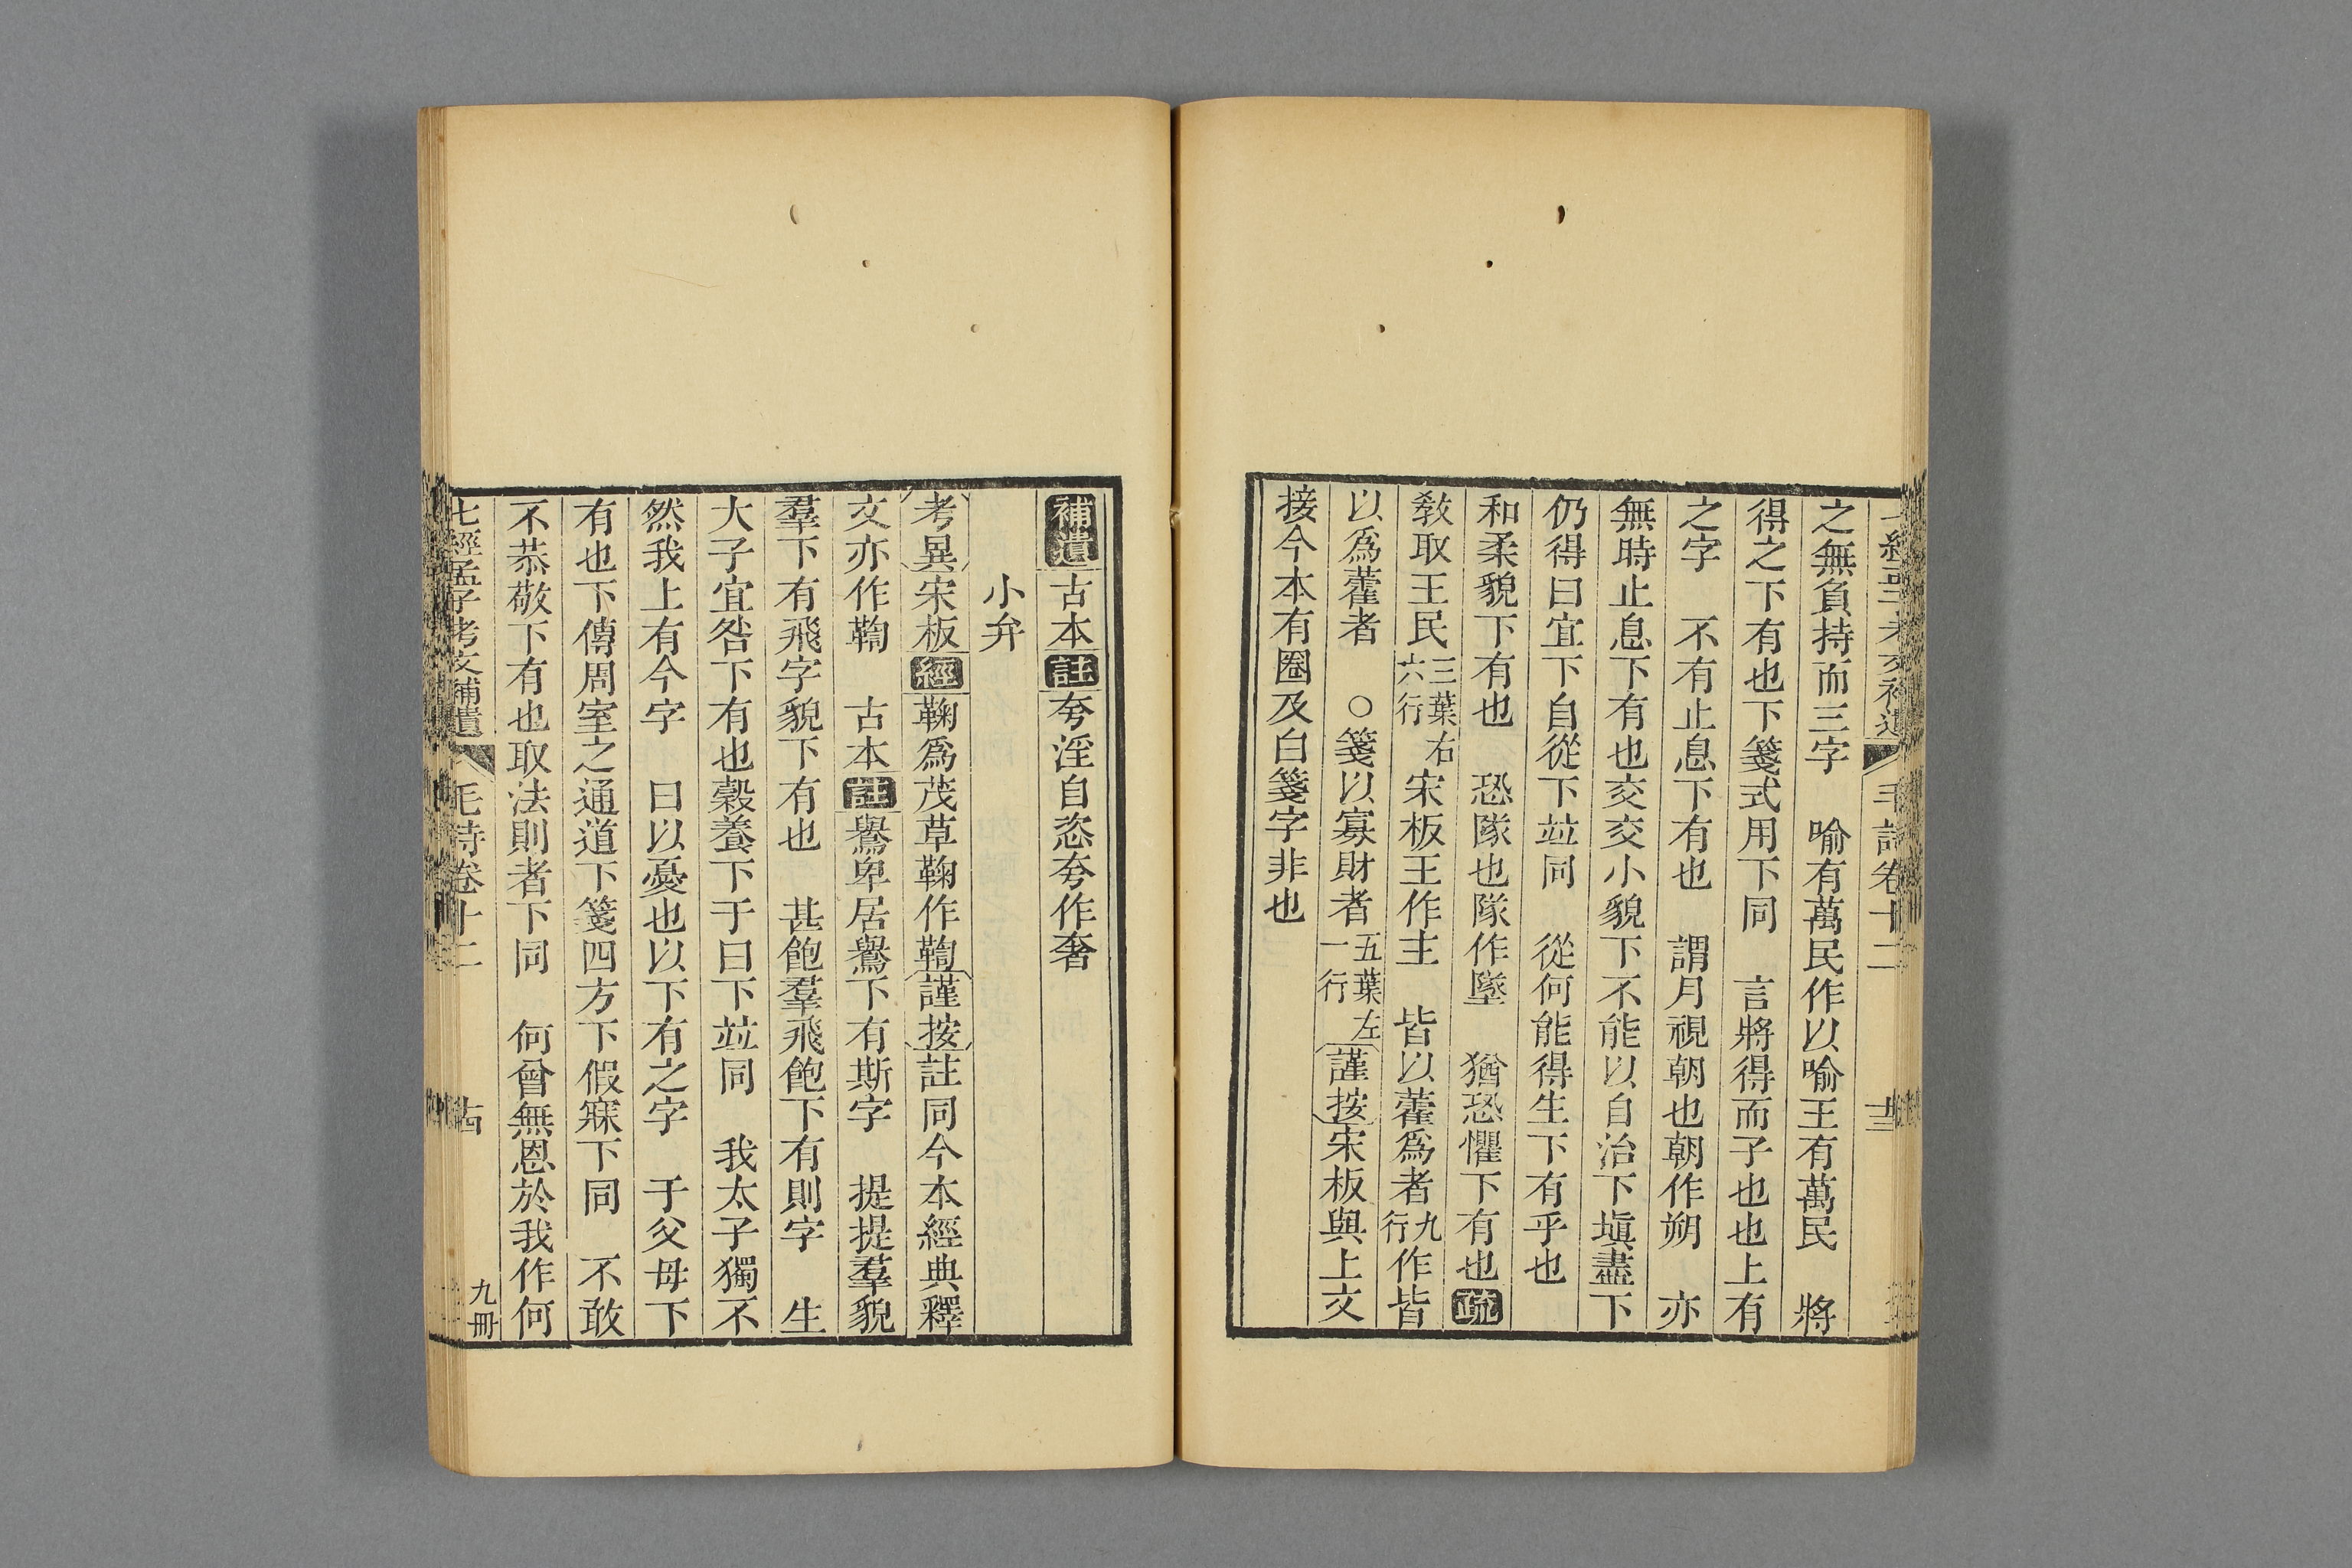 之無負持而三字　喻有萬民作以喻王有萬民　將
得之下有也下箋式用下同　言將得而子也也上有
之字　不有止息下有也　謂月視朝也朝作朔　亦
無時止息下有也交交小貌下不能以自治下塡盡下
仍得曰宜下自從下竝同　從何能得生下有乎也
和柔貌下有也　恐隊也隊作墜　猶恐懼下有也疏
敎取王民三葉右六行宋板王作主　皆以藿爲者九行作皆
以爲藿者　○箋以寡財者五葉左一行謹按宋板與上文
接今本有圈及白箋字非也
補遺古本註夸淫自恣夸作奢
小弁
考異宋板經鞠爲茂草鞠作鞫謹按註同今本經典釋
文亦作鞫　古本註鸒卑居鸒下有斯字　提提羣貌
羣下有飛字貌下有也　甚飽羣飛飽下有則字　生
大子宜咎下有也穀養下于曰下竝同　我太子獨不
然我上有今字　曰以憂也以下有之字　于父母下
有也下傳周室之通道下箋四方下假寐下同　不敢
不恭敬下有也取法則者下同　何曾無恩於我作何
七經孟子考文補遺　毛詩卷十二　古　九冊